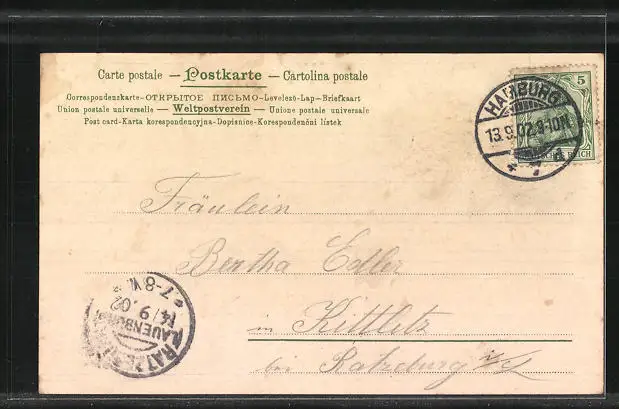 Carte postale — Postkarte — Cartolina postale
Correspondenzkarte—ОТКРЫТОЕ ПИСЬМО—Levelező-Lap—Briefkaart
Union postale universelle — Weltpostverein — Unione postale universale
Post card-Karta korespondencyjna-Dopisnice-Korespondenční lístek
5
HAMBURG
13.9.02.9-10N
REICH
Fräulein
Bertha Edler
in Kittlitz
bei Ratzeburg i/L
7-8V.
14/9.02
(LAUENBURG)